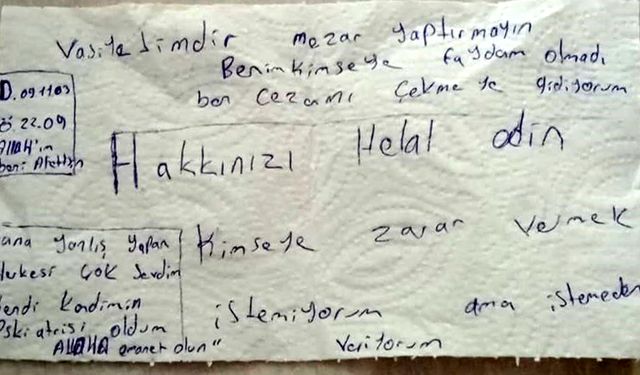 Vasiyetimdir mezar yaptırmayın
Benim kimseye faydam olmadı
ben Cezamı Çekmeye gidiyorum
D. 09.11.03
Ö 22.09
Allah'ım
beni Affetsin
Hakkınızı Helal edin
Kimseye zarar vermek
istemiyorum ama istemeden
veriyorum
ana yanlış yapan
Herkesi Çok Sevdim
Kendi Kadimin
Pskiatrisi oldum
Allaha emanet olun"